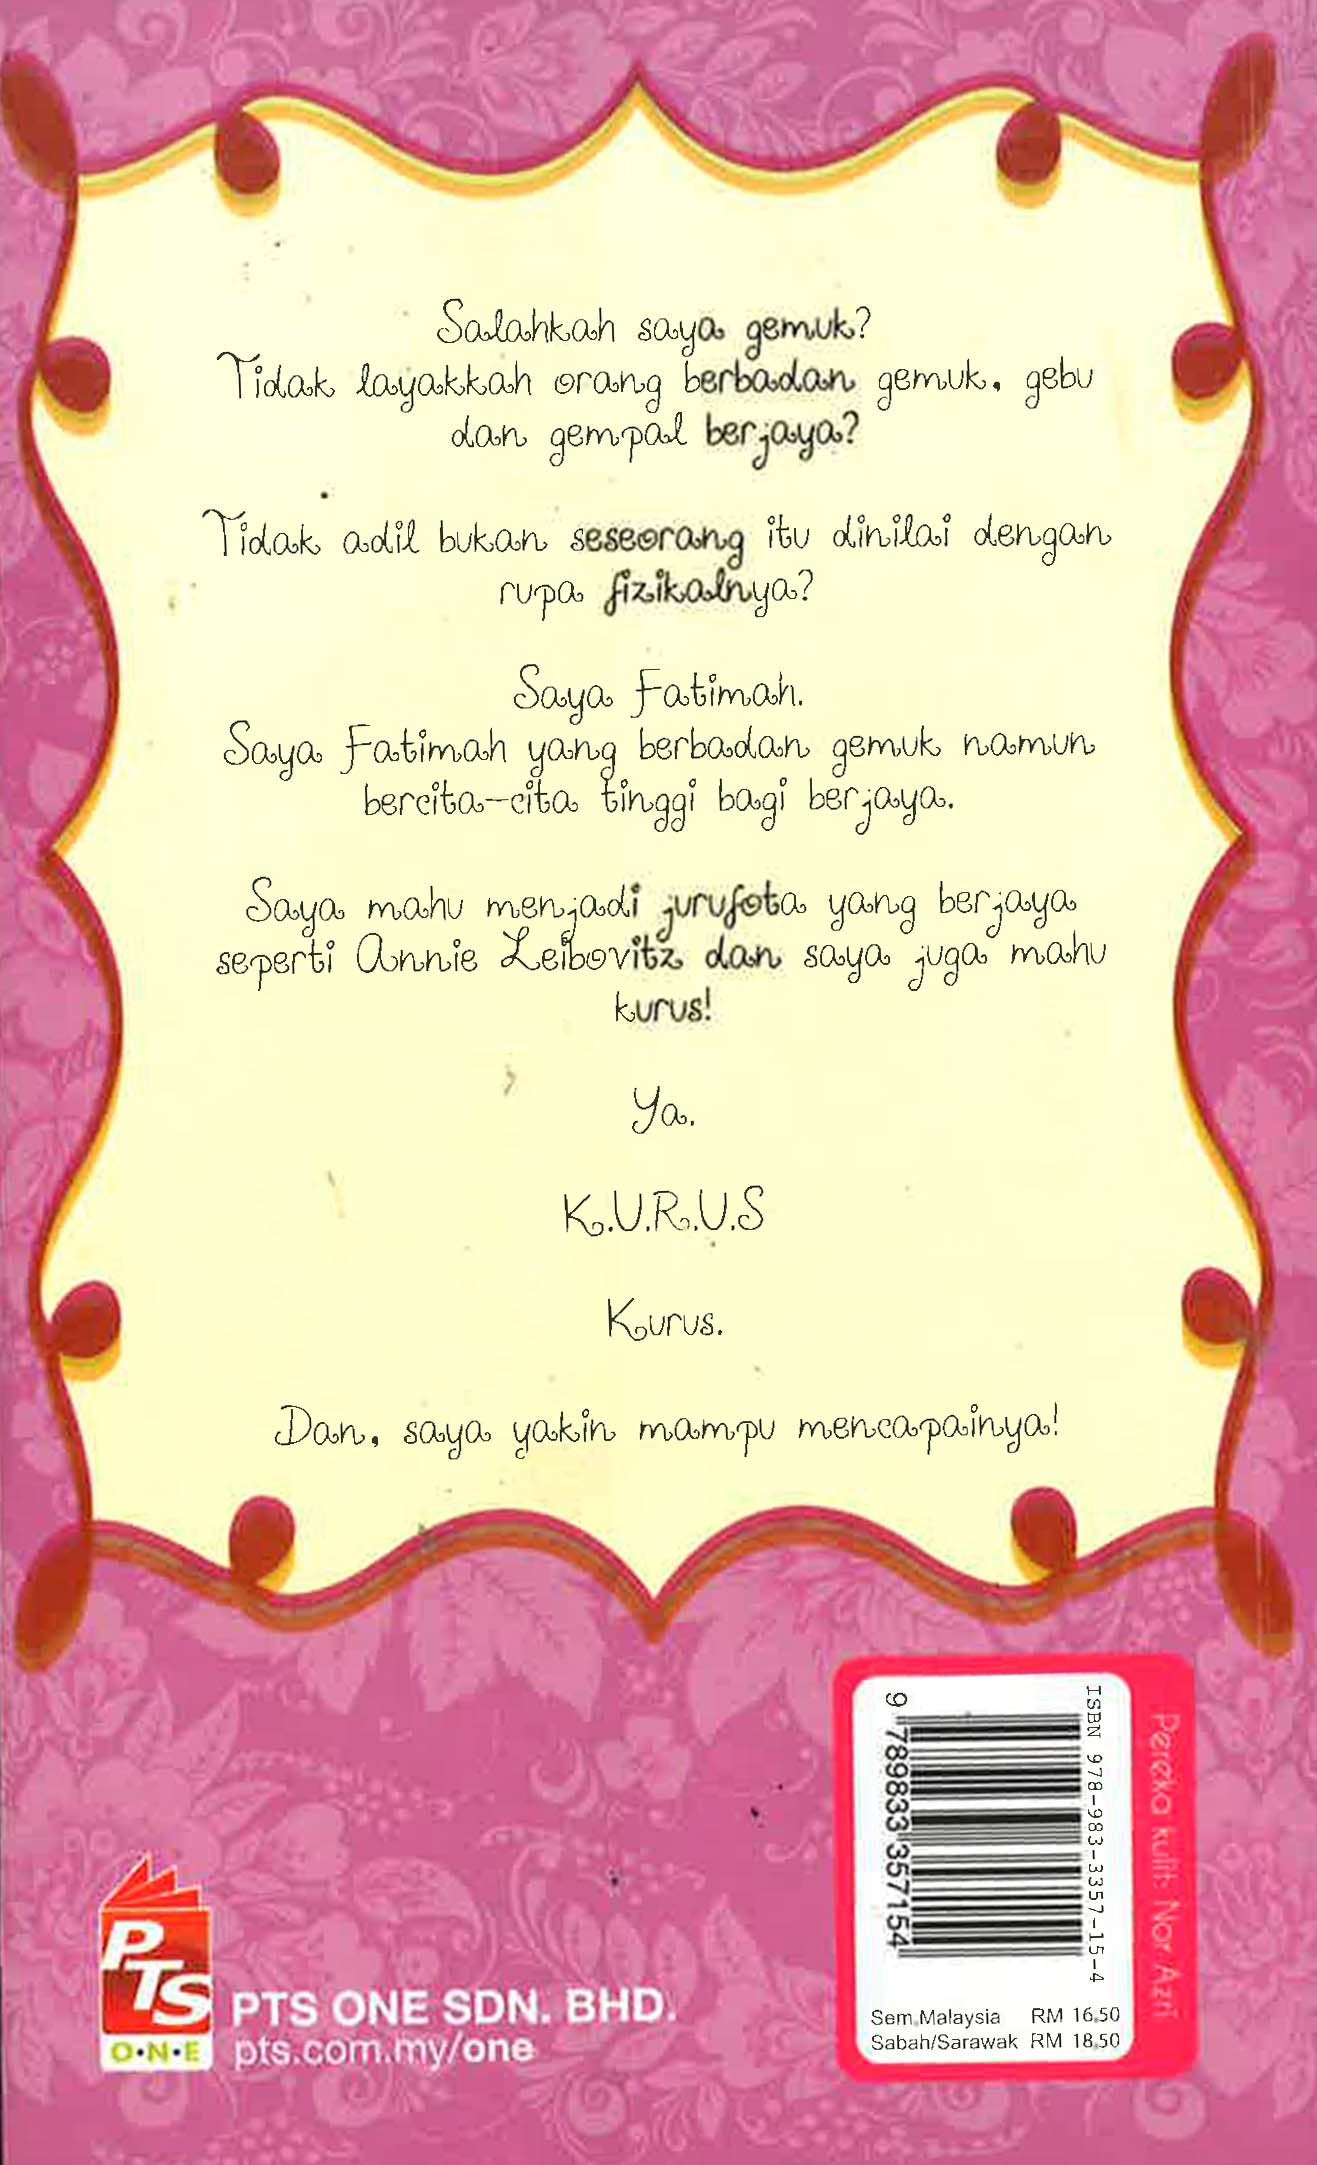 Salahkah saya gemuk?
Tidak layakkah orang berbadan gemuk, gebu
dan gempal berjaya?
Tidak adil bukan seseorang itu dinilai dengan
rupa fizikalnya?
Saya Fatimah.
Saya Fatimah yang berbadan gemuk namun
bercita-cita tinggi bagi berjaya.
Saya mahu menjadi jurufota yang berjaya
seperti Annie Leibovitz dan saya juga mahu
kurus!
Ya.
K.U.R.U.S
Kurus.
Dan, saya yakin mampu mencapainya!
PTS
O•N•E
PTS ONE SDN. BHD.
pts.com.my/one
ISBN 978-983-3357-15-4
9 789833 357154
Sem.Malaysia RM 16.50
Sabah/Sarawak RM 18.50
Pereka kulit: Nor Azri